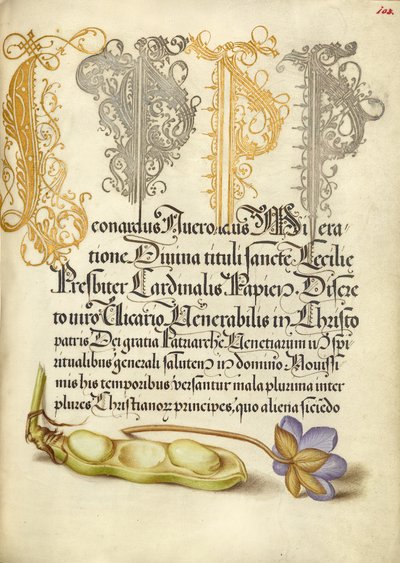 102.
L P P P
eonardus Misera
tione Diuina tituli sancte Cecilie
Presbiter Cardinalis Papien. Discre
to viro Vicario Venerabilis in Christo
patris Dei gratia Patriarche Venetiarum in spi
ritualibus generali salutem in domino. Nouissi
mis his temporibus versantur mala plurima inter
plures principes, quo aliena siciēdo